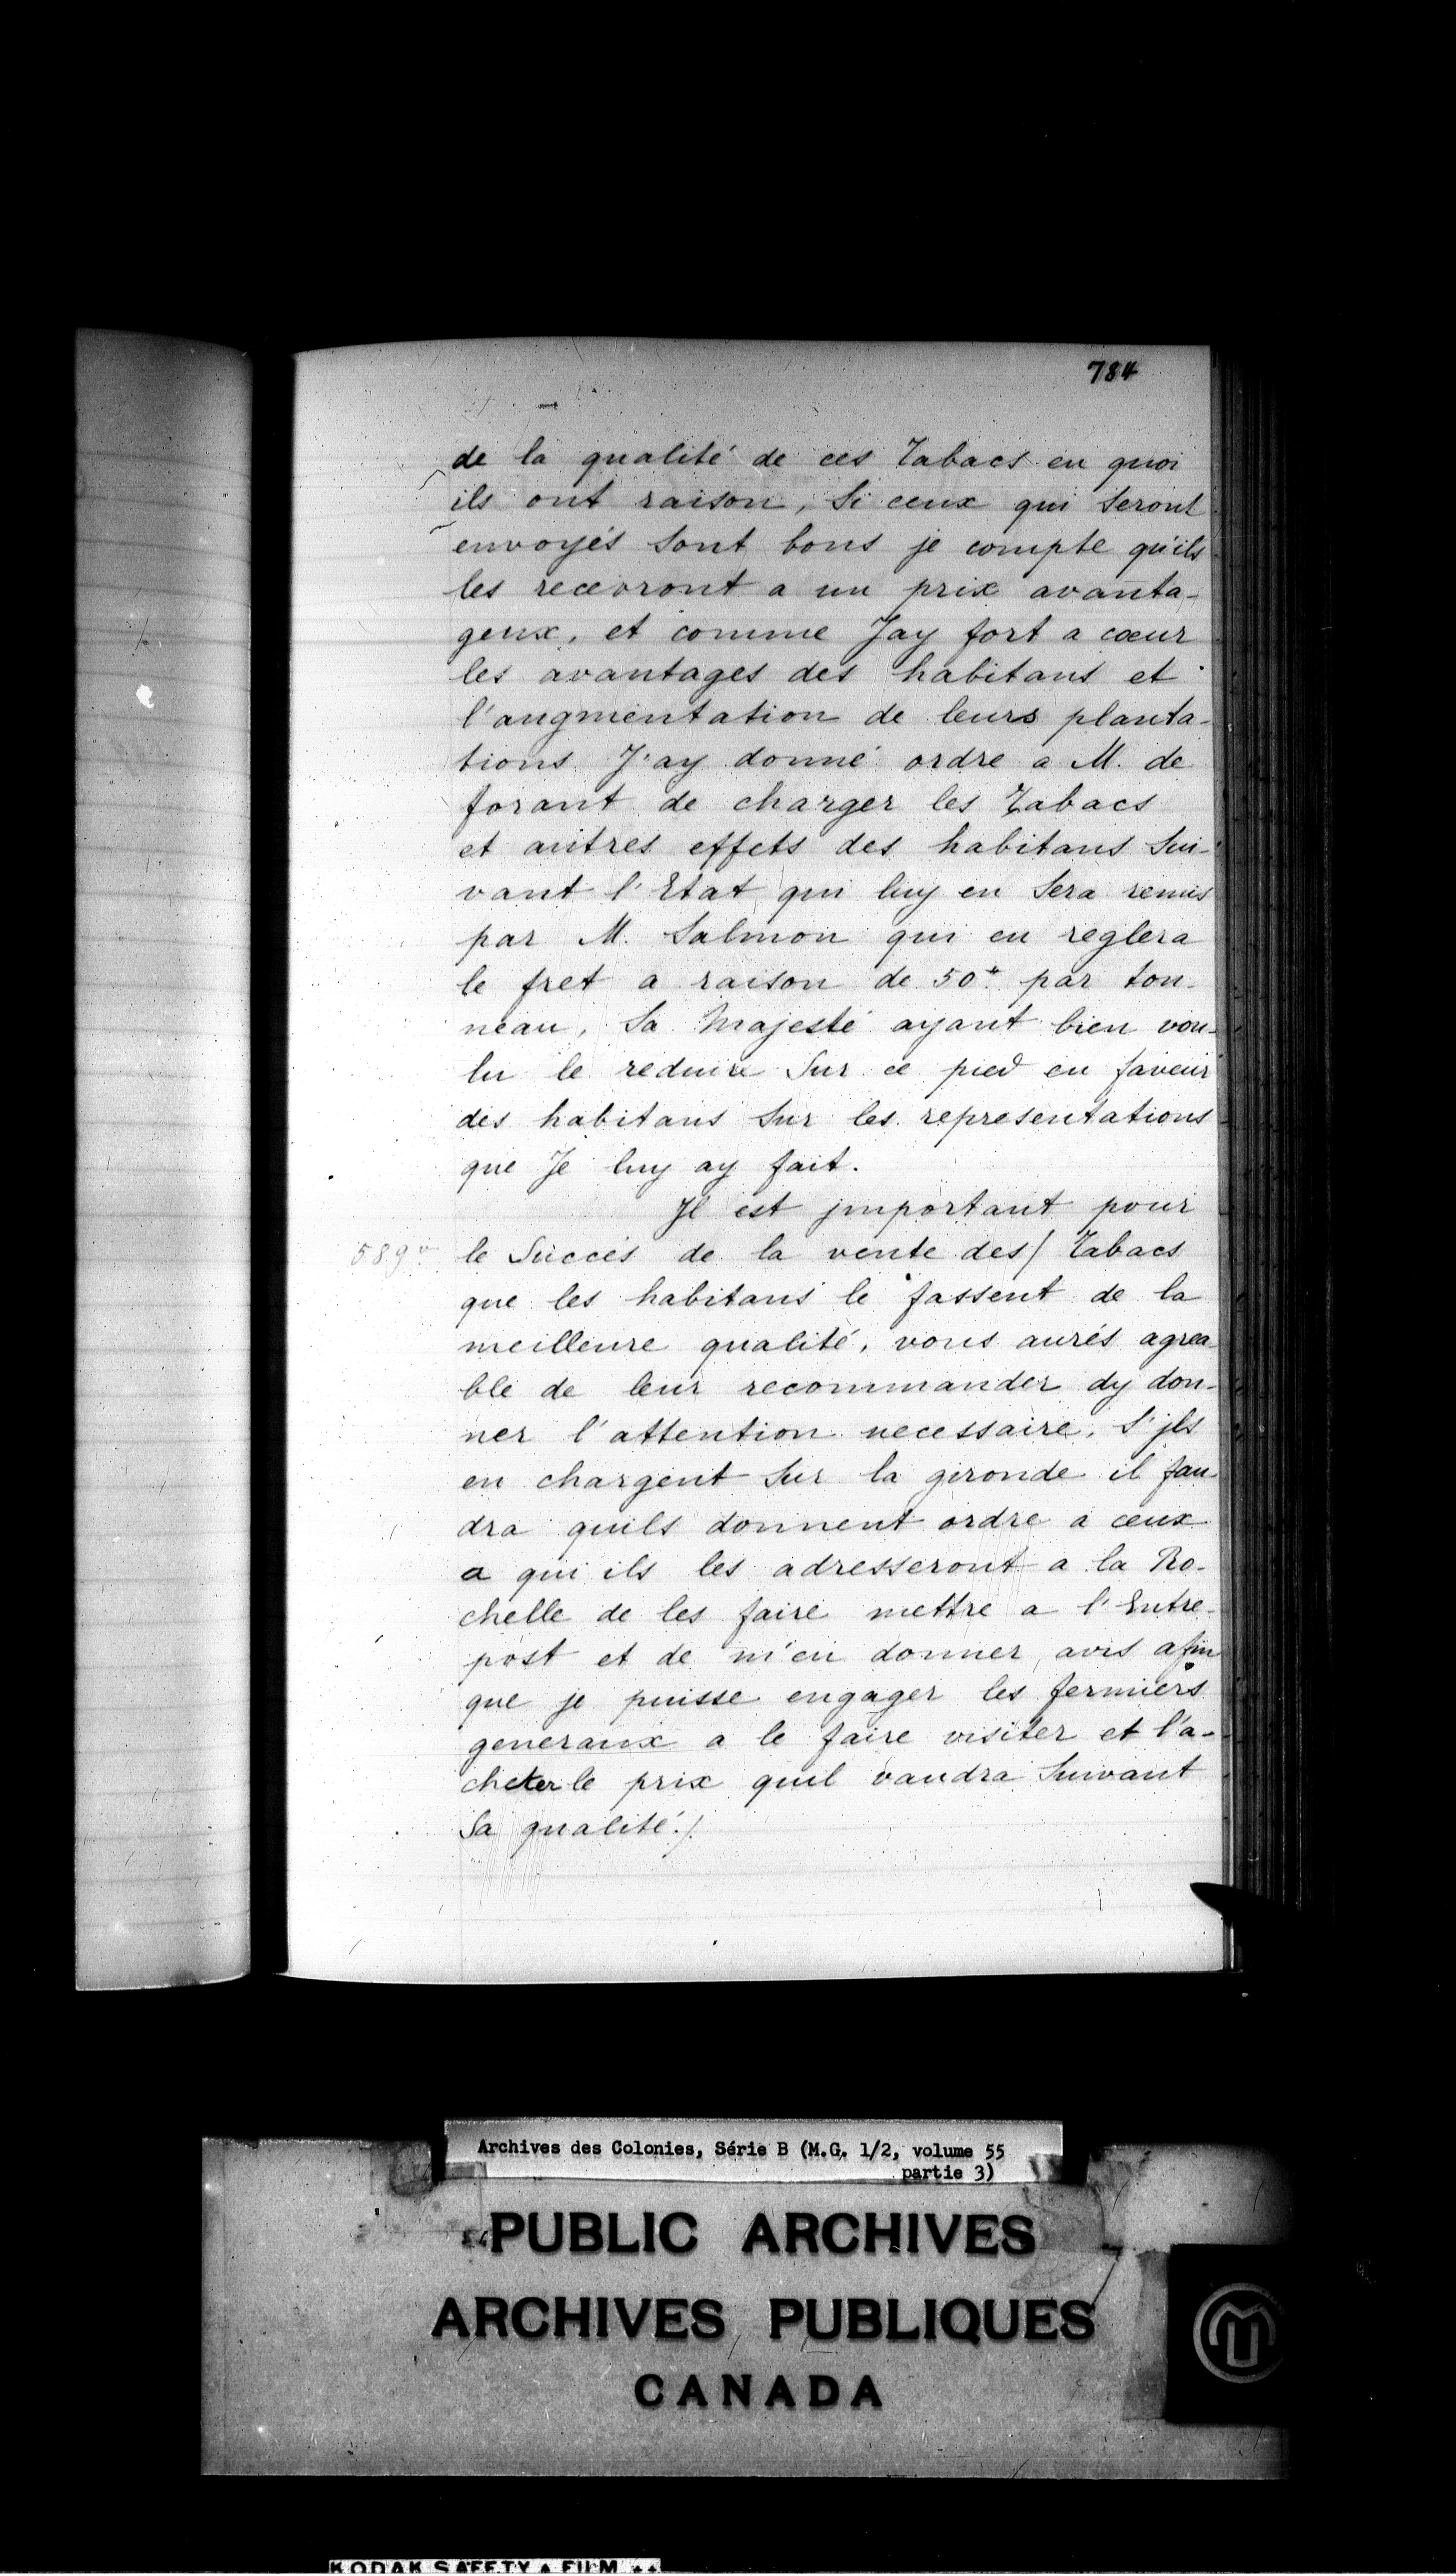 784
de la qualité de ces Tabacs en quoi
ils ont raison, Si ceux qui Seront
envoyés Sont bons je compte qu'ils
les recevront a un prix avanta-
geux, et comme Jay fort a cœur
les avantages des habitans et
l'augmentation de leurs planta-
tions J'ay donné ordre a M. de
forant de charger les Tabacs
et autres effets des habitans Sui-
vant l'Etat qui luy en Sera remis
par M. Salmon qui en reglera
le fret a raison de 50# par ton-
neau, Sa Majesté ayant bien vou-
lu le reduire Sur ce pied en faveur
des habitans Sur les representations
que Je luy ay fait.
Jl est jmportant pour
589v le Succés de la vente des/ Tabacs
que les habitans le fassent de la
meilleure qualité, vous aurés agrea-
ble de leur recommander dy don-
ner l'attention necessaire, S'jls
en chargent Sur la gironde il fau-
dra quils donnent ordre a ceux
a qui ils les adresseront a la Ro-
chelle de les faire mettre a l'Entre-
post et de m'en donner avis afin
que je puisse engager les fermiers
generaux a le faire visiter et l'a-
cheter le prix quil vaudra Suivant
Sa qualité./.
Archives des Colonies, Série B (M.G. 1/2, volume 55
partie 3)
PUBLIC ARCHIVES
ARCHIVES PUBLIQUES
CANADA
KODAK SAFETY FILM